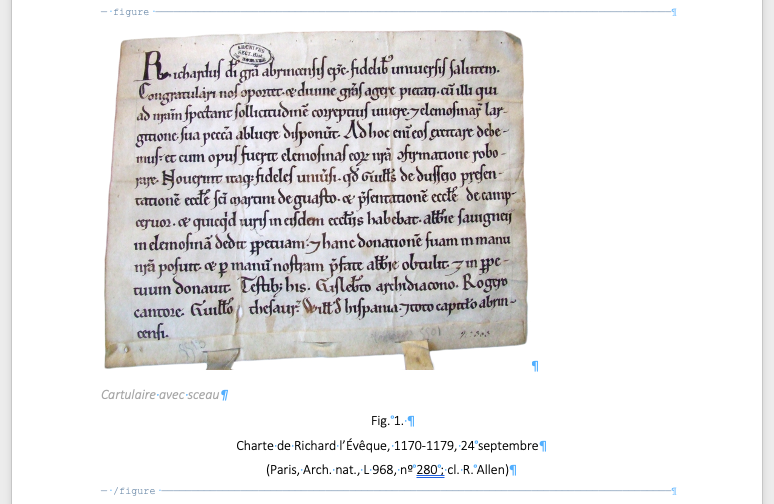 figure
ARCHIVES
Richardus di gra abrincensis epc. fidelib universis salutem.
Congratulari nos oportet. et divine gras agere pietati. cu illi qui
ad nram spectant sollicitudine correptius vivere. 7 elemosinar lar-
gitione sua pecca abluere disponut. Ad hoc eni eos excitare debe-
mus. et cum opus fuerit elemosinas eoz nra confirmatione robo-
rare. Noverint itaq; fideles univsi. qd Guills de
tatione eccle sci martini de guasto. et psentatione eccle de camp-
cervor. et quicqd iuris in eisdem eccliis habebat. abbie savigneii
in elemosina dedit ppetuam. 7 hanc donatione suam in manu
nra posuit. et p manu nostram pfate abbie obtulit. 7 in ppe-
tuum donavit. Testib; his. Gisleberto archidiacono. Rogero
cantore. Guillo thesaur. Willo hispania. 7 toto capitlo abrin-
censi.
Cartulaire avec sceau
Fig. 1.
Charte de Richard l’Évêque, 1170-1179, 24 septembre
(Paris, Arch. nat., L 968, nº 280 ; cl. R. Allen)
/figure